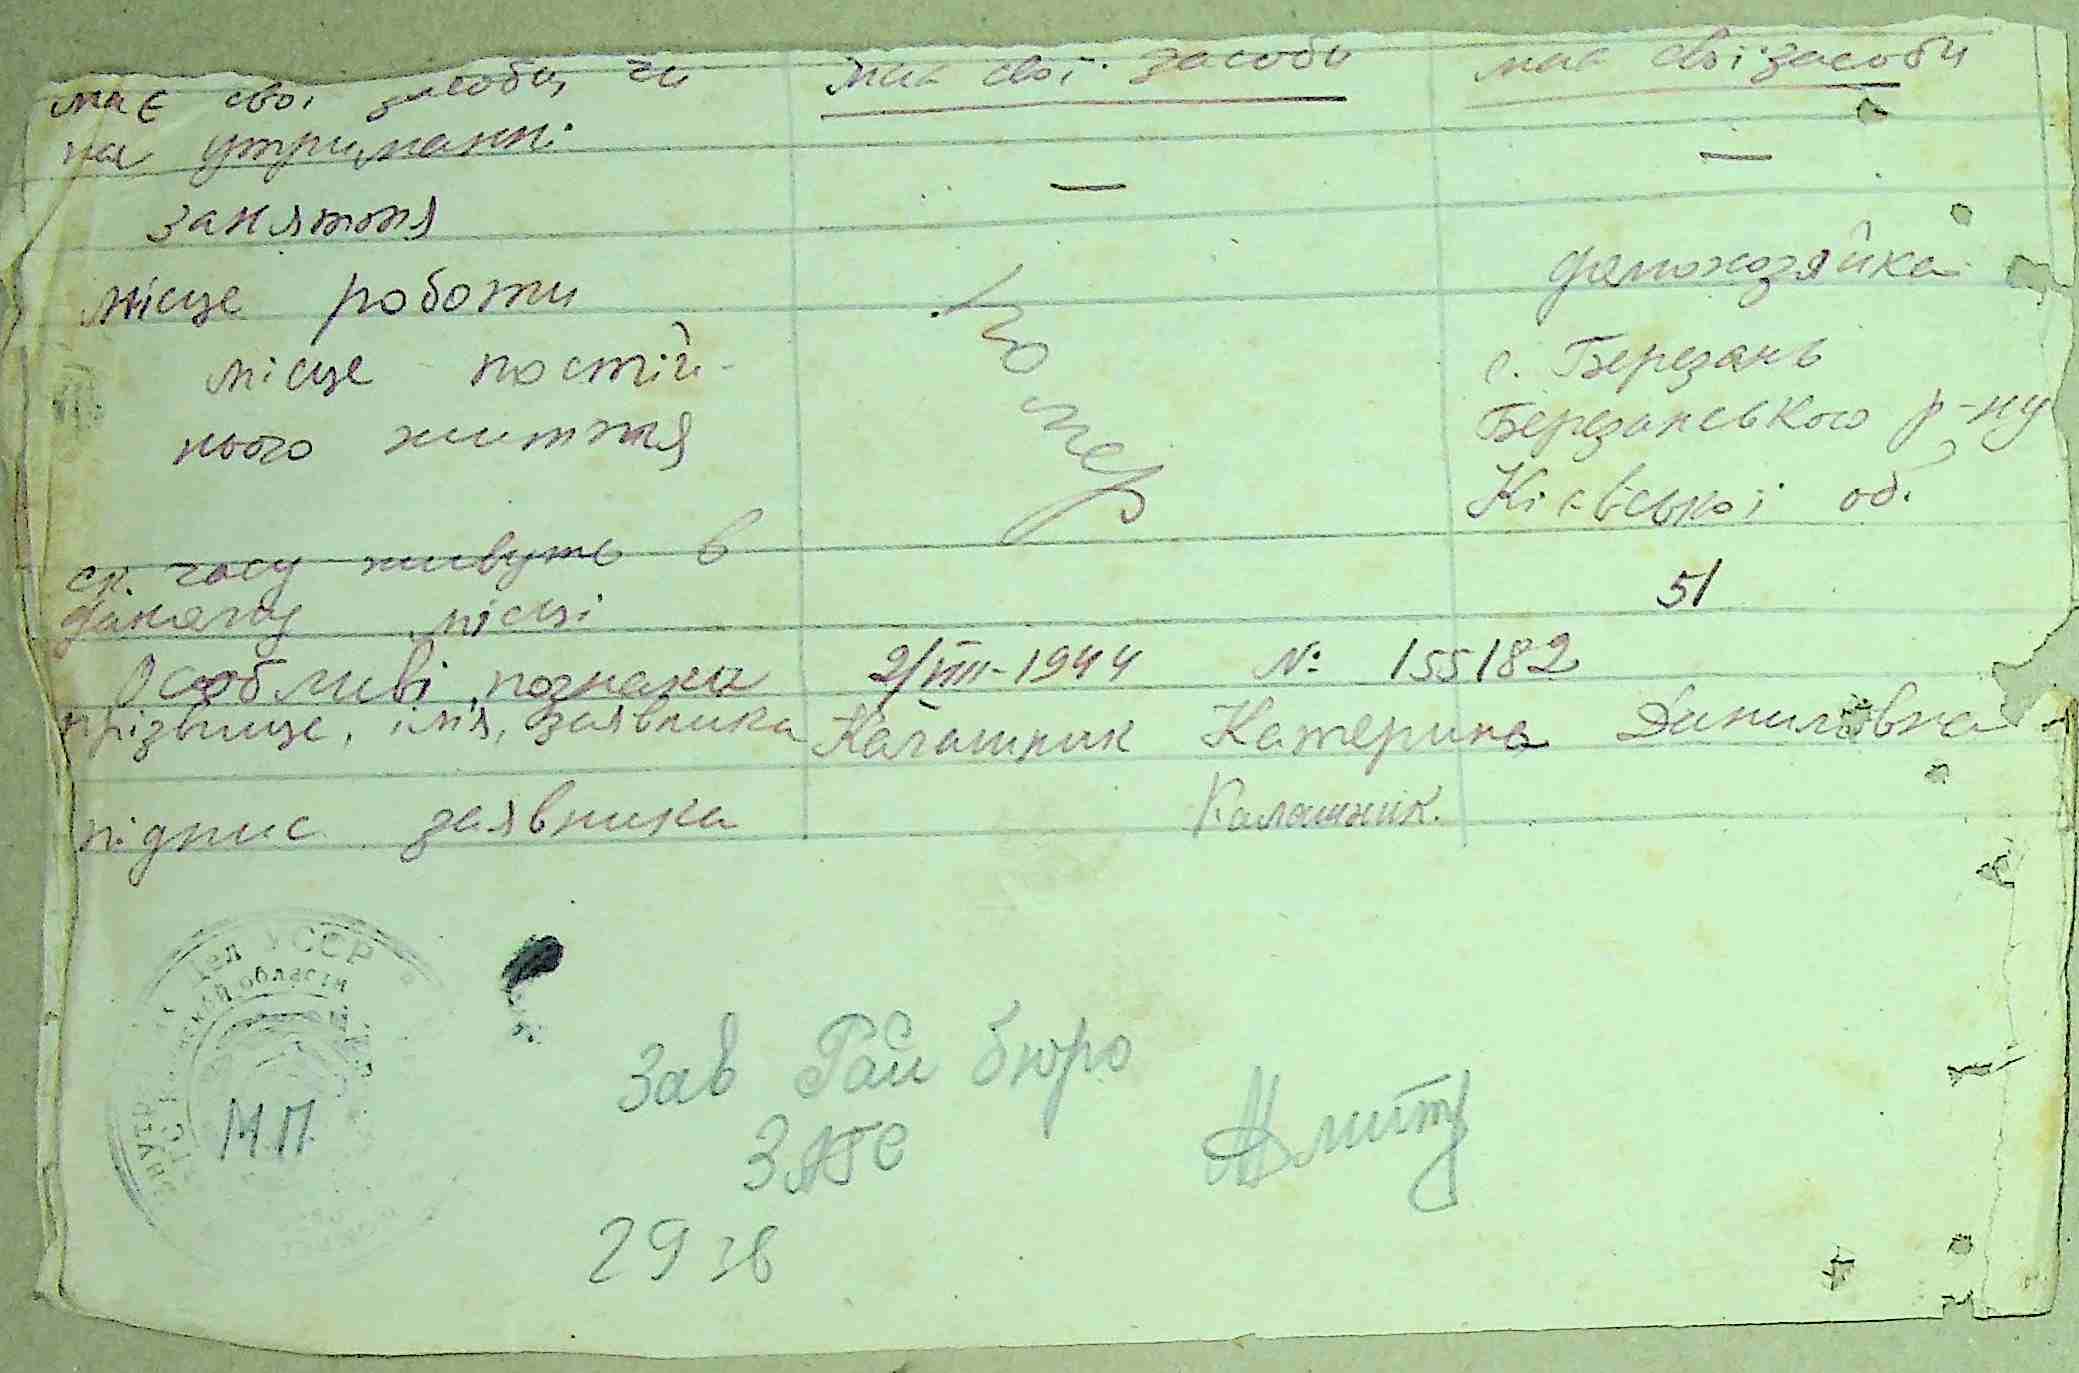 має свої засоби чи має свої засоби має свої засоби
на утриманні
заняття — —
місце роботи домохозяйка
місце постій- помер с. Березань
ного життя Березанського р-ну
Київської об.
ск. часу живуть в 51
даному місці
Особливі познаки 2/VIII-1944 № 155182
прізвище, імя, заявника Калашник Катерина Даниловна
підпис заявника Калашник.
дел УССР
ской области
М.П.
Зав Рай бюро
ЗАГС
29 зв